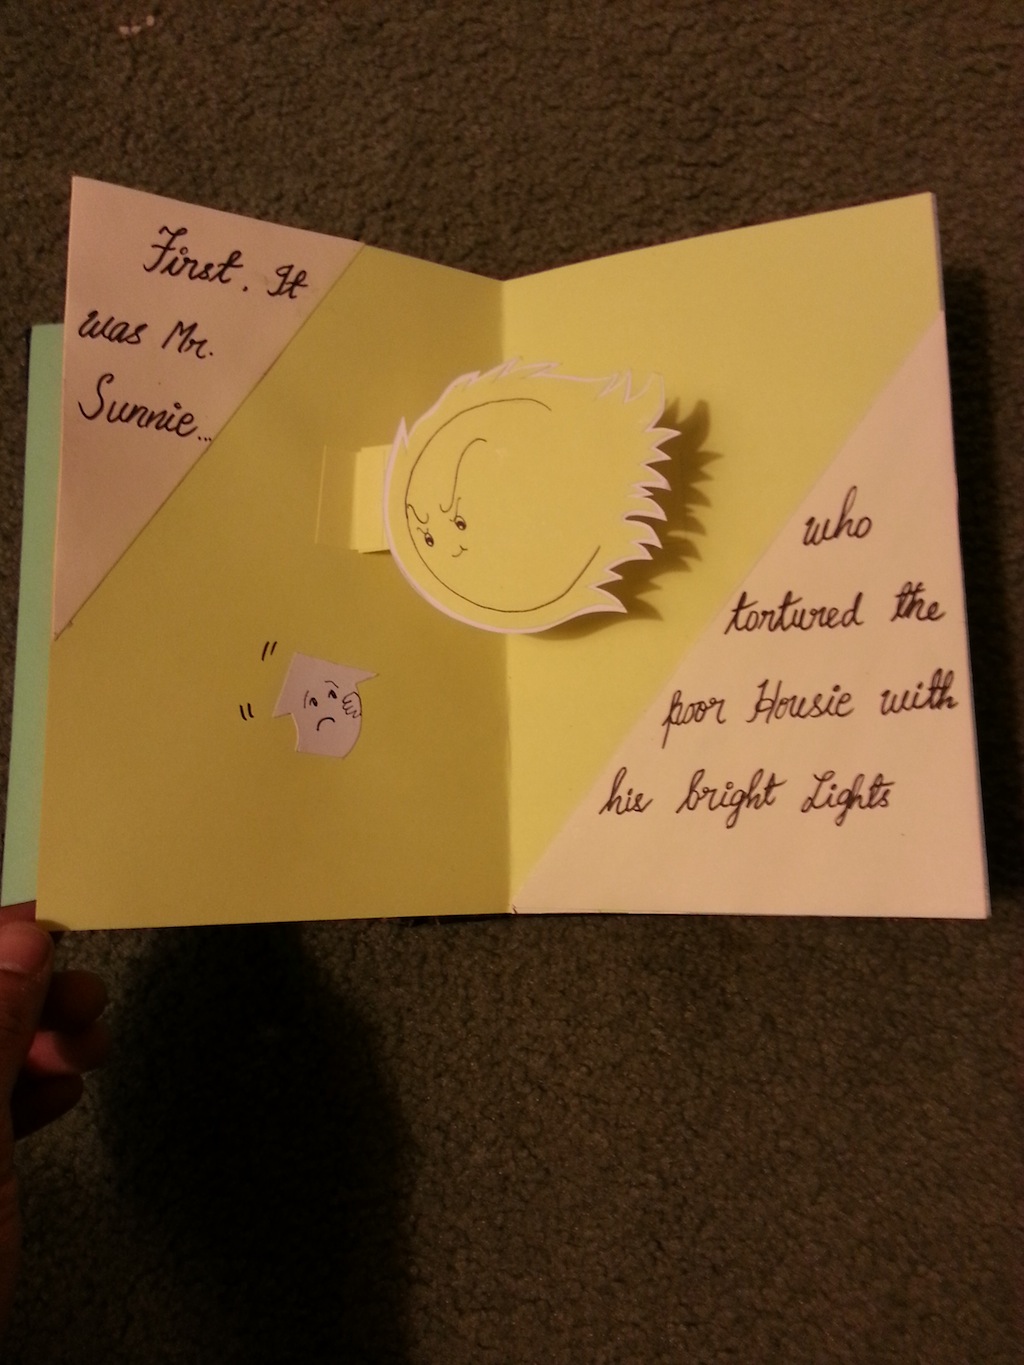 First. It
was Mr.
Sunnie...
who
tortured the
poor Housie with
his bright Lights